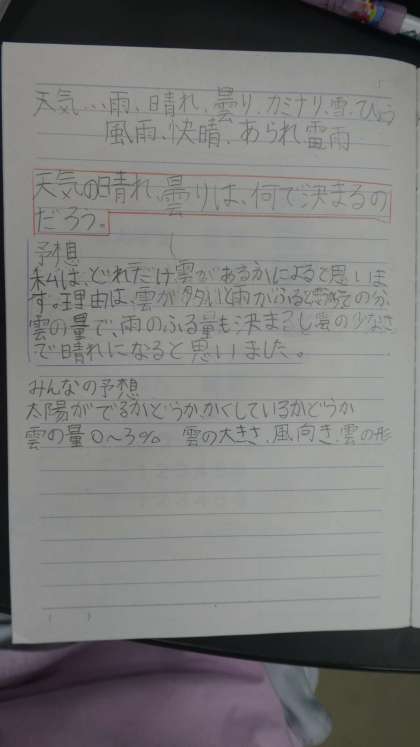 天気…雨、晴れ、曇り、カミナリ、雪、ひょう
風雨、快晴、あられ、雷雨
天気の晴れ、曇りは、何で決まるの
だろう。
予想
私は、どれだけ雲があるかによると思いま
す。理由は、雲が多いと雨がふると
雲の量で、雨のふる量も決まるし雲の少なさ
で晴れになると思いました。
みんなの予想
太陽がでるかどうか、かくしているかどうか
雲の量0〜3% 雲の大きさ、風向き、雲の形